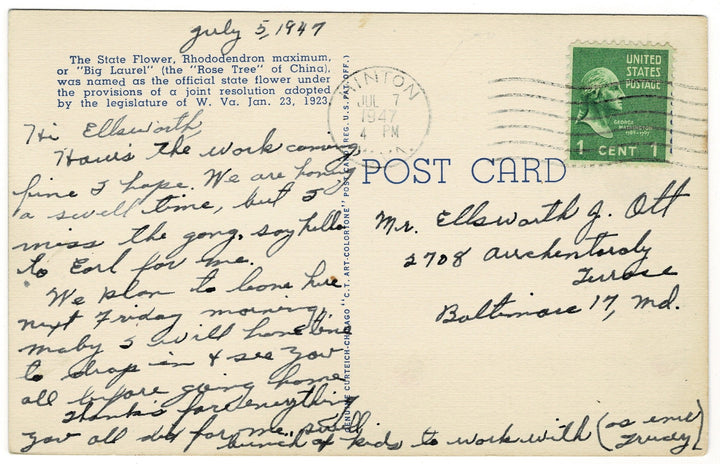 July 5, 1947
The State Flower, Rhododendron maximum,
or "Big Laurel" (the "Rose Tree" of China),
was named as the official state flower under
the provisions of a joint resolution adopted
by the legislature of W. Va. Jan. 23, 1923.
Hi Ellsworth,
How's the work coming,
fine I hope. We are having
a swell time, but I
miss the gang, say hello
to Earl for me.
We plan to leave here
next Friday morning,
maby I will have time
to drop in & see you
all before going home
Thanks for everything
you all did for me, swell
bunch of kids to work with (as ever Trudy)
GENUINE CURTEICH-CHICAGO "C.T. ART-COLORTONE" POST CARD (REG. U.S. PAT. OFF.)
HINTON
JUL 7
1947
4 PM
UNITED
STATES
POSTAGE
GEORGE
WASHINGTON
1 CENT 1
POST CARD
Mr. Ellsworth J. Ott
2708
Terrace
Baltimore 17, Md.